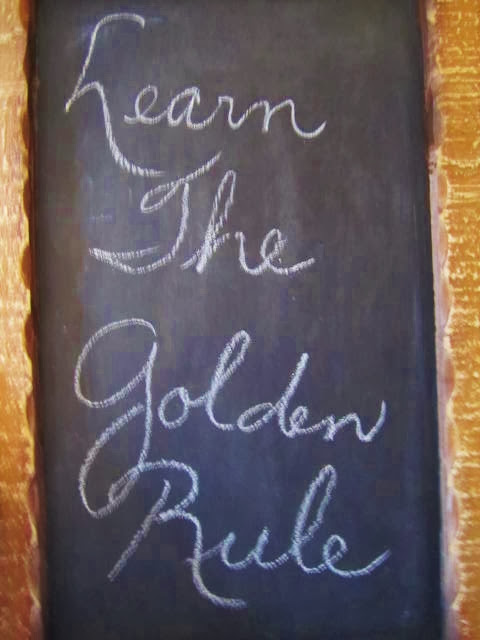 Learn
The
Golden
Rule